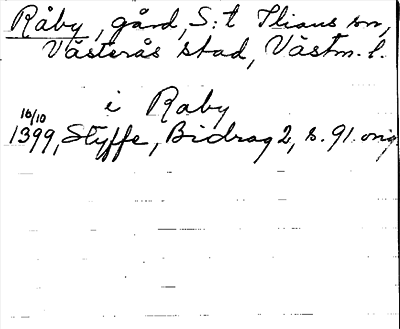 Råby, gård, S:t Ilians sn,
Västerås stad, Västm. l.
i Raby
16/10
1399, Styffe, Bidrag 2, s. 91. orig.